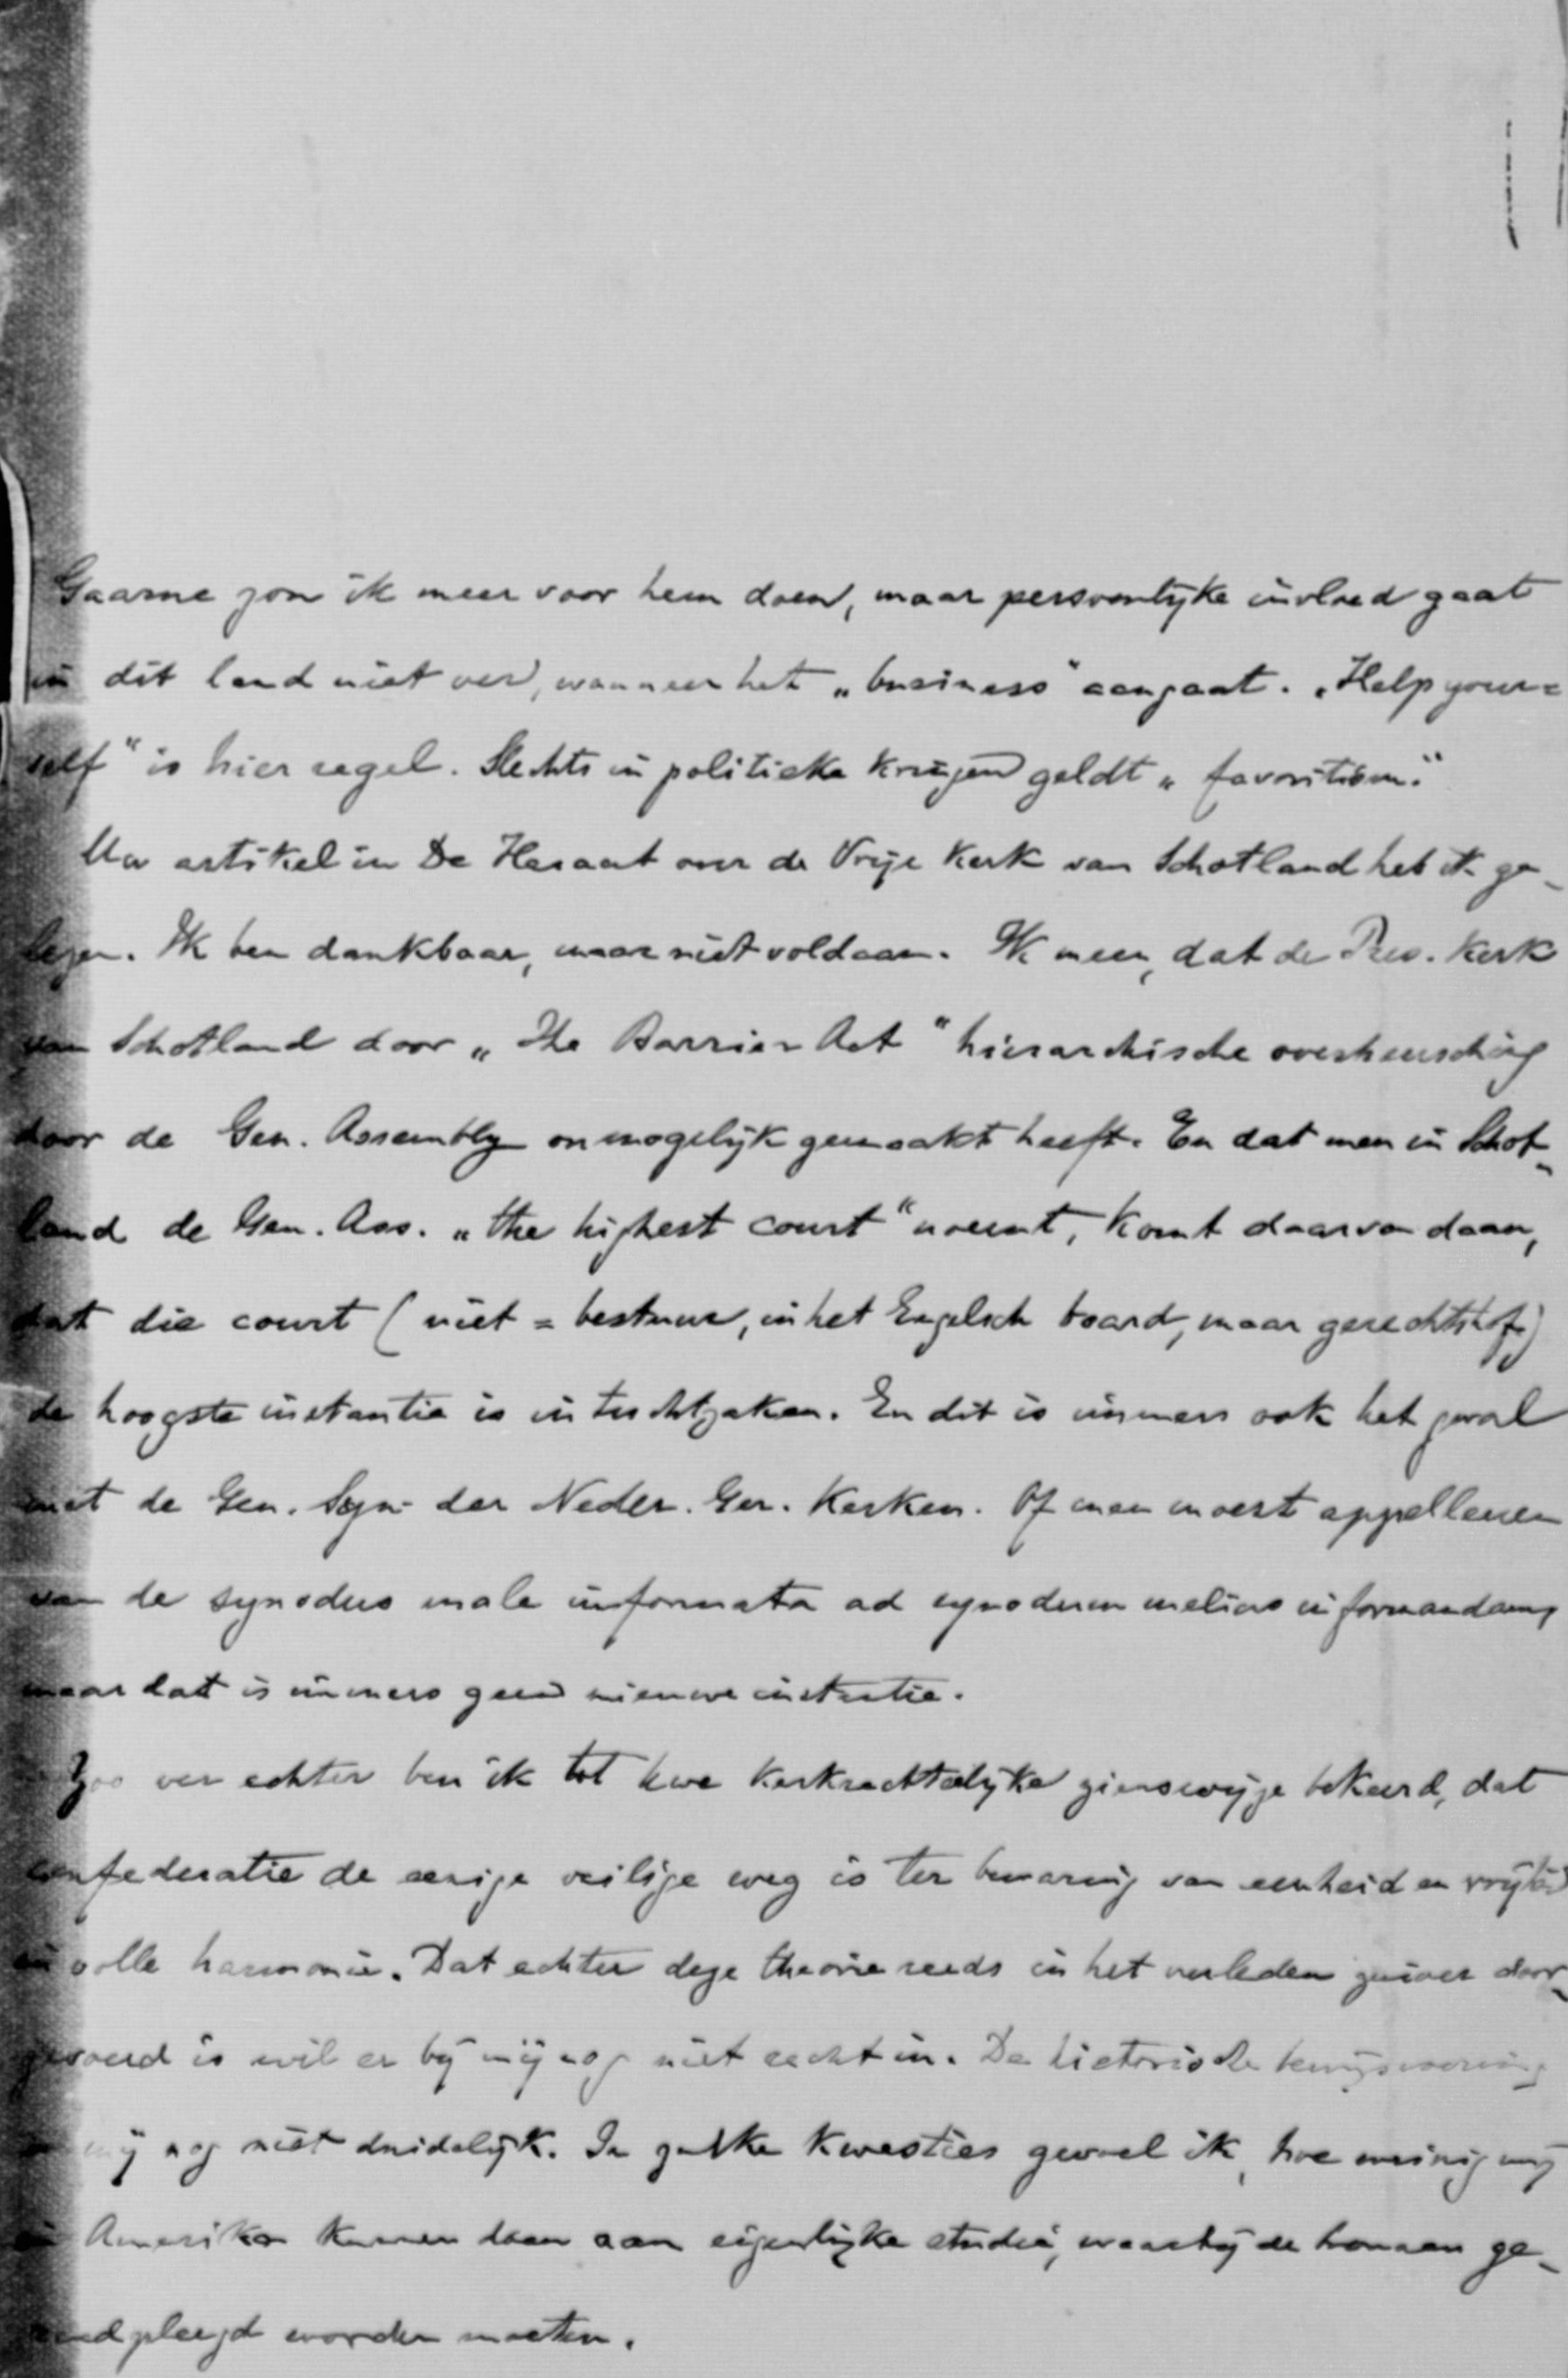 Gaarne zou ik meer voor hem doen, maar persoonlijke invloed gaat
in dit land niet ver, wanneer het „business" aangaat. „Help your=
self" is hier regel. Slechts in politieke kringen geldt „favoritism."
Uw artikel in De Heraut over de Vrije Kerk van Schotland heb ik ge-
lezen. Ik ben dankbaar, maar niet voldaan. Ik meen, dat de Pres. Kerk
van Schotland door „The Barrier Act" hierarchische overheersching
door de Gen. Assembly onmogelijk gemaakt heeft. En dat men in Schot-
land de Gen. Ass. „the highest court" noemt, komt daarvan daan,
dat die court (niet = bestuur, in het Engelsch board, maar gerechtshof)
de hoogste instantie is in tuchtzaken. En dit is immers ook het geval
met de Gen. Syn. der Neder. Ger. Kerken. Of men moest appelleeren
van de synodus male informata ad synodum melius informandam,
maar dat is immers geen nieuwe instantie.
Zoo ver echter ben ik tot Uwe kerkrechtelijke zienswijze bekeerd, dat
confederatie de eenige veilige weg is ter bewaring van eenheid en vrijheid
in volle harmonie. Dat echter deze theorie reeds in het verleden zuiver door-
gevoerd is wil er bij mij nog niet recht in. De historische bewijsvoering
is mij nog niet duidelijk. In zulke kwesties gevoel ik, hoe weinig wij
in Amerika kunnen doen aan eigenlijke studie, waarbij de bronnen ge-
raadpleegd worden moeten.